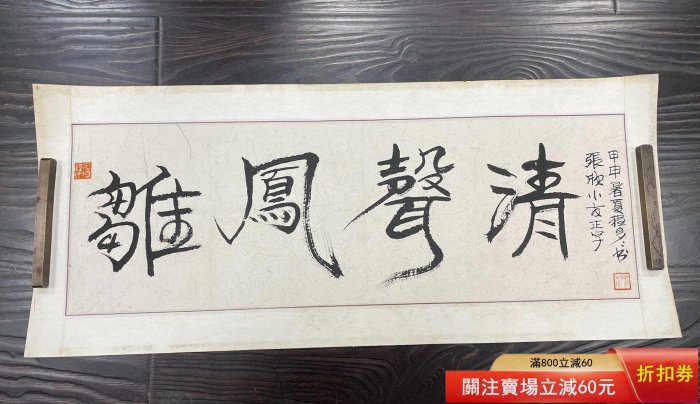 雛鳳聲清
張欣小友正字
甲申暑夏程多多书
滿800立減60
關注賣場立減60元
折扣券